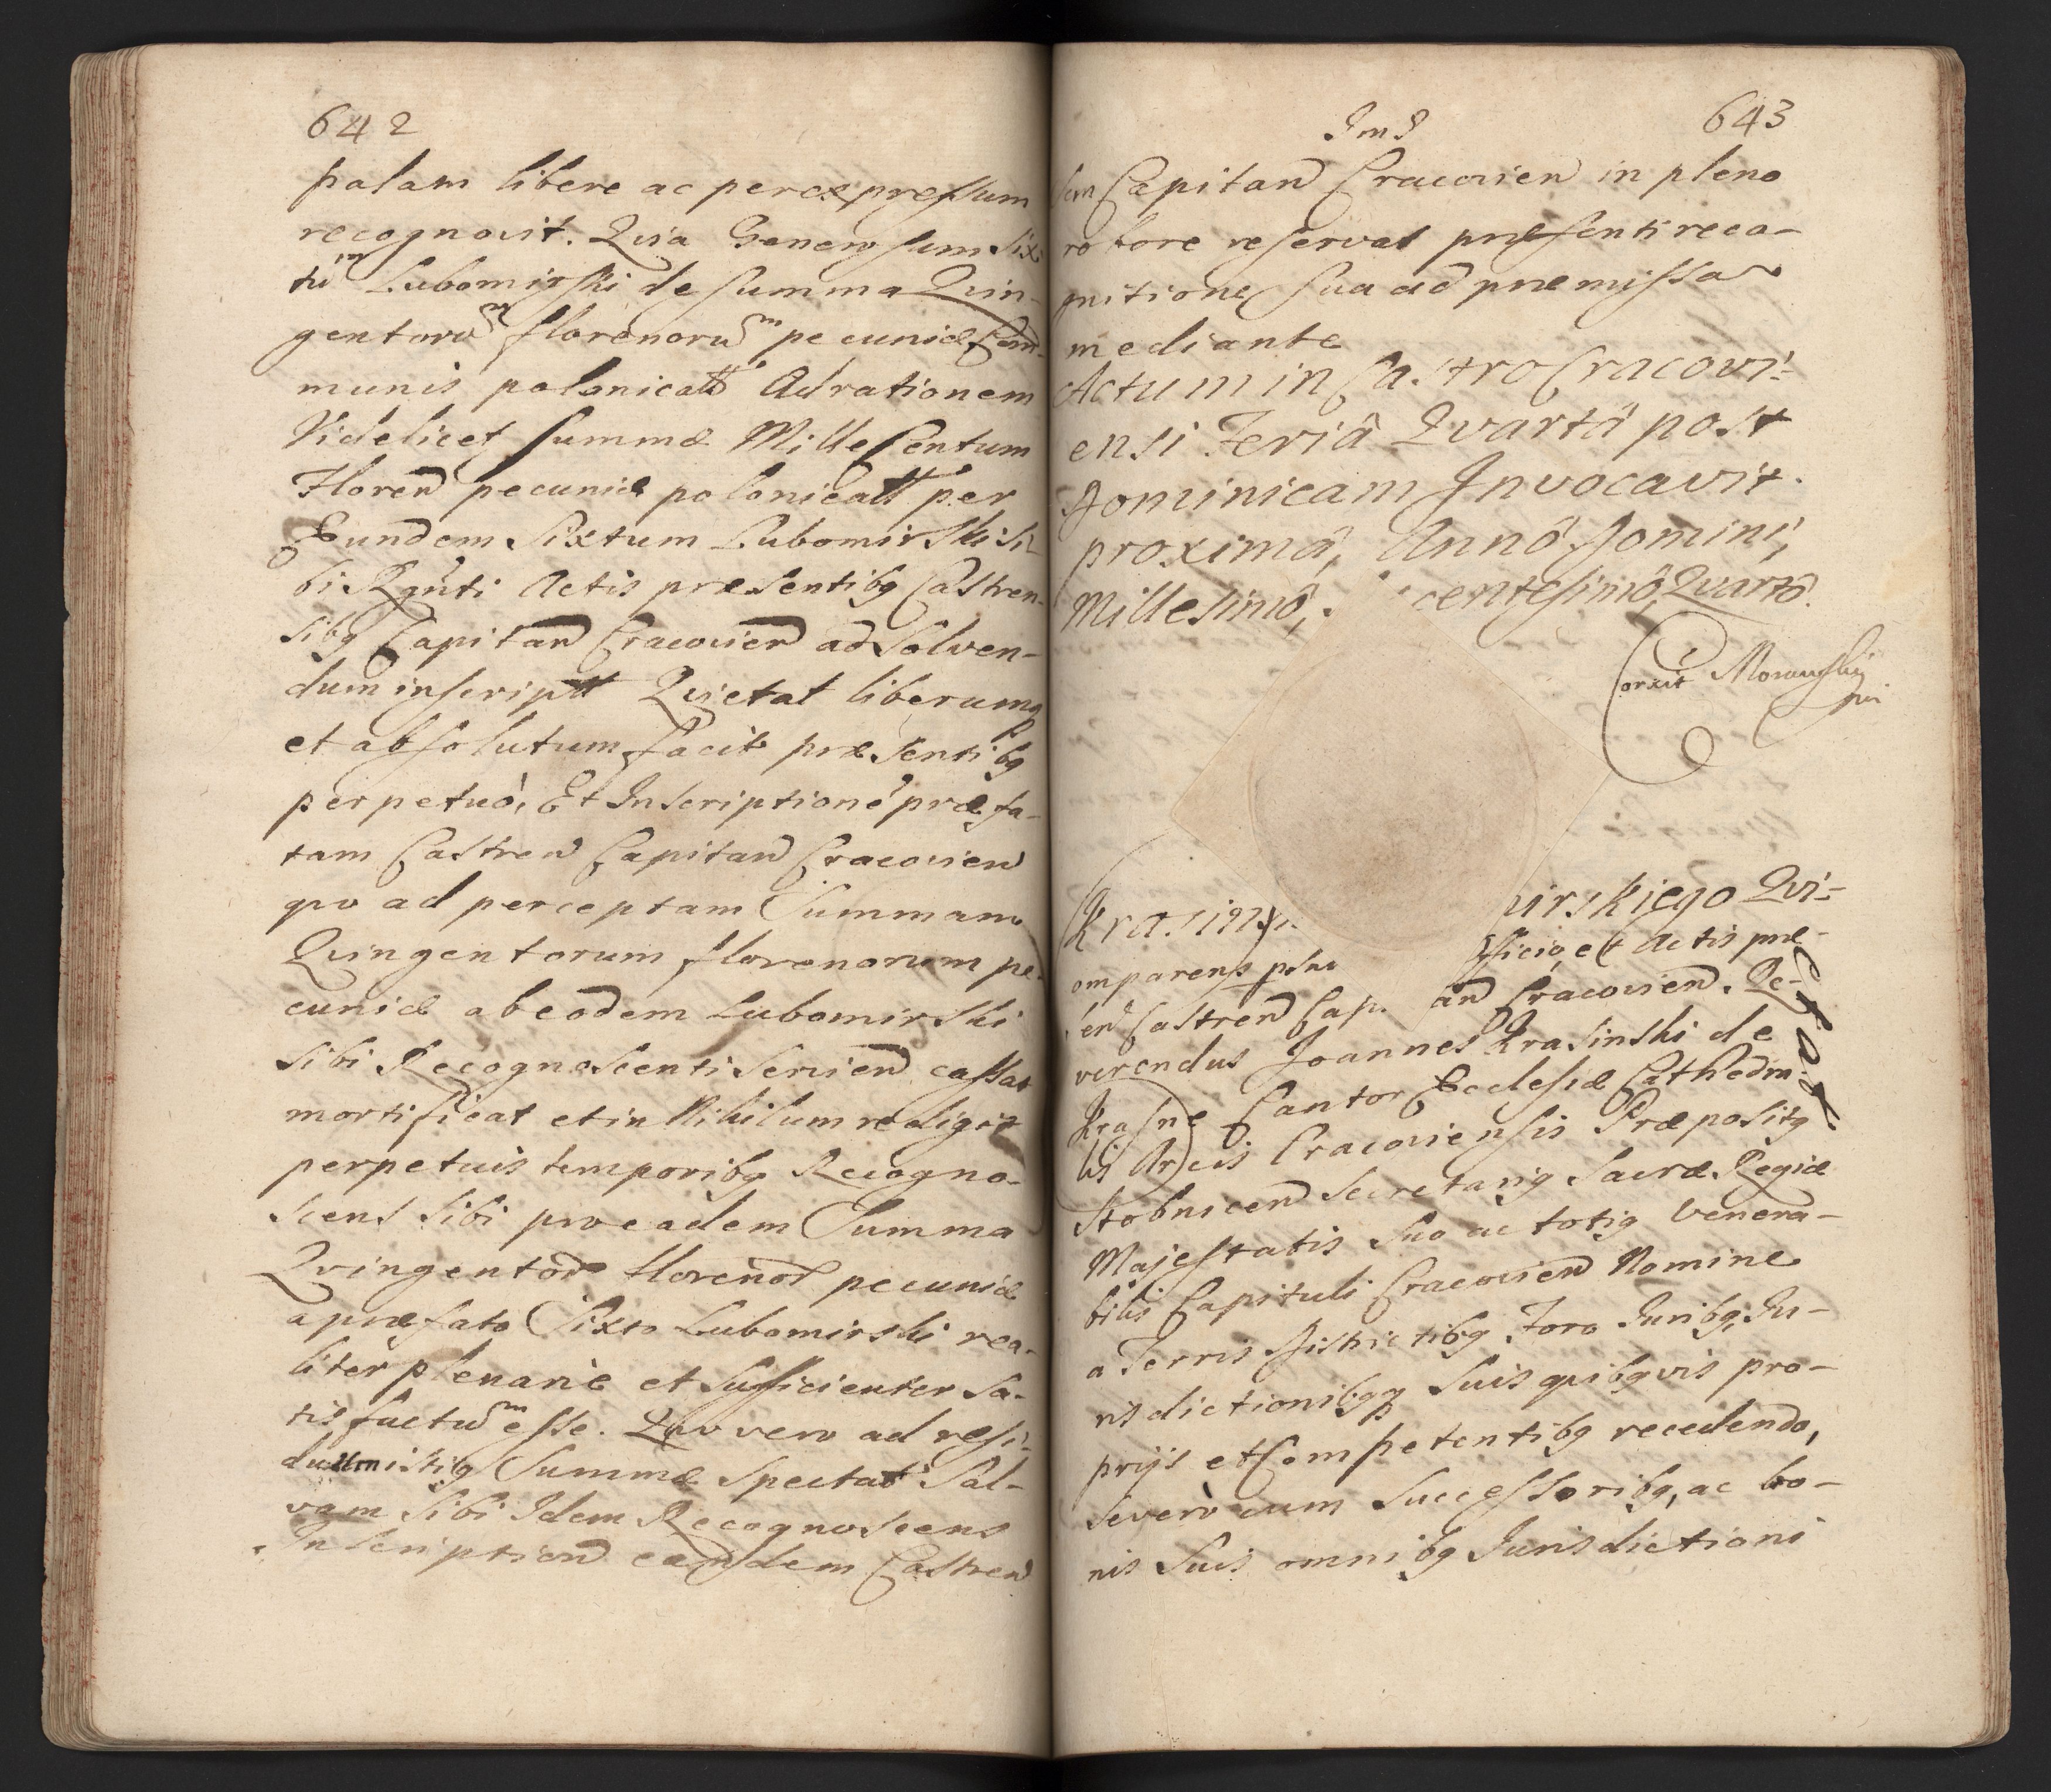 642
palam libere ac per expressum
recognovit. Qvia Generosum Six
tũm Lubomirski de summa Qvin-
gentorũm florenorũm pecuniæ Com-
munis polonicatt Ad rationem
Videlicet summæ Mille Centum
Floren pecuniæ polonicatt per
Eundem Sixtum Lubomirski Si-
bi Rgnti Actis præsentibq Castren-
sibq Capitan Cracovien ad solven-
dum inscriptt Qvietat liberumq
et absolutum facit præsentibq
perpetuò, Et Inscriptionē præfa-
tam Castren Capitan Cracovien
qvo ad perceptam Summam
Qvingentorum florenorum pe-
cuniæ ab eodem Lubomirski
sibi Recognoscenti Servien cassat
mortificat et in Nihilum redigit
perpetuis temporibq Recogno-
scens sibi pro eadem Summa
Qvingentor florenor pecuniæ
a præfato Sixto Lubomirski rea-
liter plenariè et sufficienter sa-
tis factũm esse. Qvo vero ad resi-
duum istiq Summæ Spectat Sal-
vam sibi Idem Recognoscens
Inscription eandem Castren
643
Capitan Cracovien in pleno
robore reservat præsenti reco-
gnitione sua ad præmissa
mediante
Actum in Castro Cracovi-
ensi Feriâ Qvartâ post
Dominicam Invocavit
proximâ, Annô Domini,
Millesimô, centesimô Qvartô.
Corxit
Krasinski irskiego Qvi-
etat
omparens fficio, et Actis præ-
en Castren Cap an Cracovien. Re-
verendus Joannes Krasinski de
Krasne Cantor Ecclesiæ Cathedra
lis Arcis Cracoviensis Præpositq
Stobnicen Secretariq Sacræ Regiæ
Majestatis suo ac totiq Venera-
bilis Capituli Cracovien Nomine
a Terris Districtibq Foro Juribq, Ju-
risdictionibqq suis qvibqvis pro-
prijs et Competentibq recedendo,
se verò cum Successoribq, ac bo-
nis suis omnibq Jurisdictioni